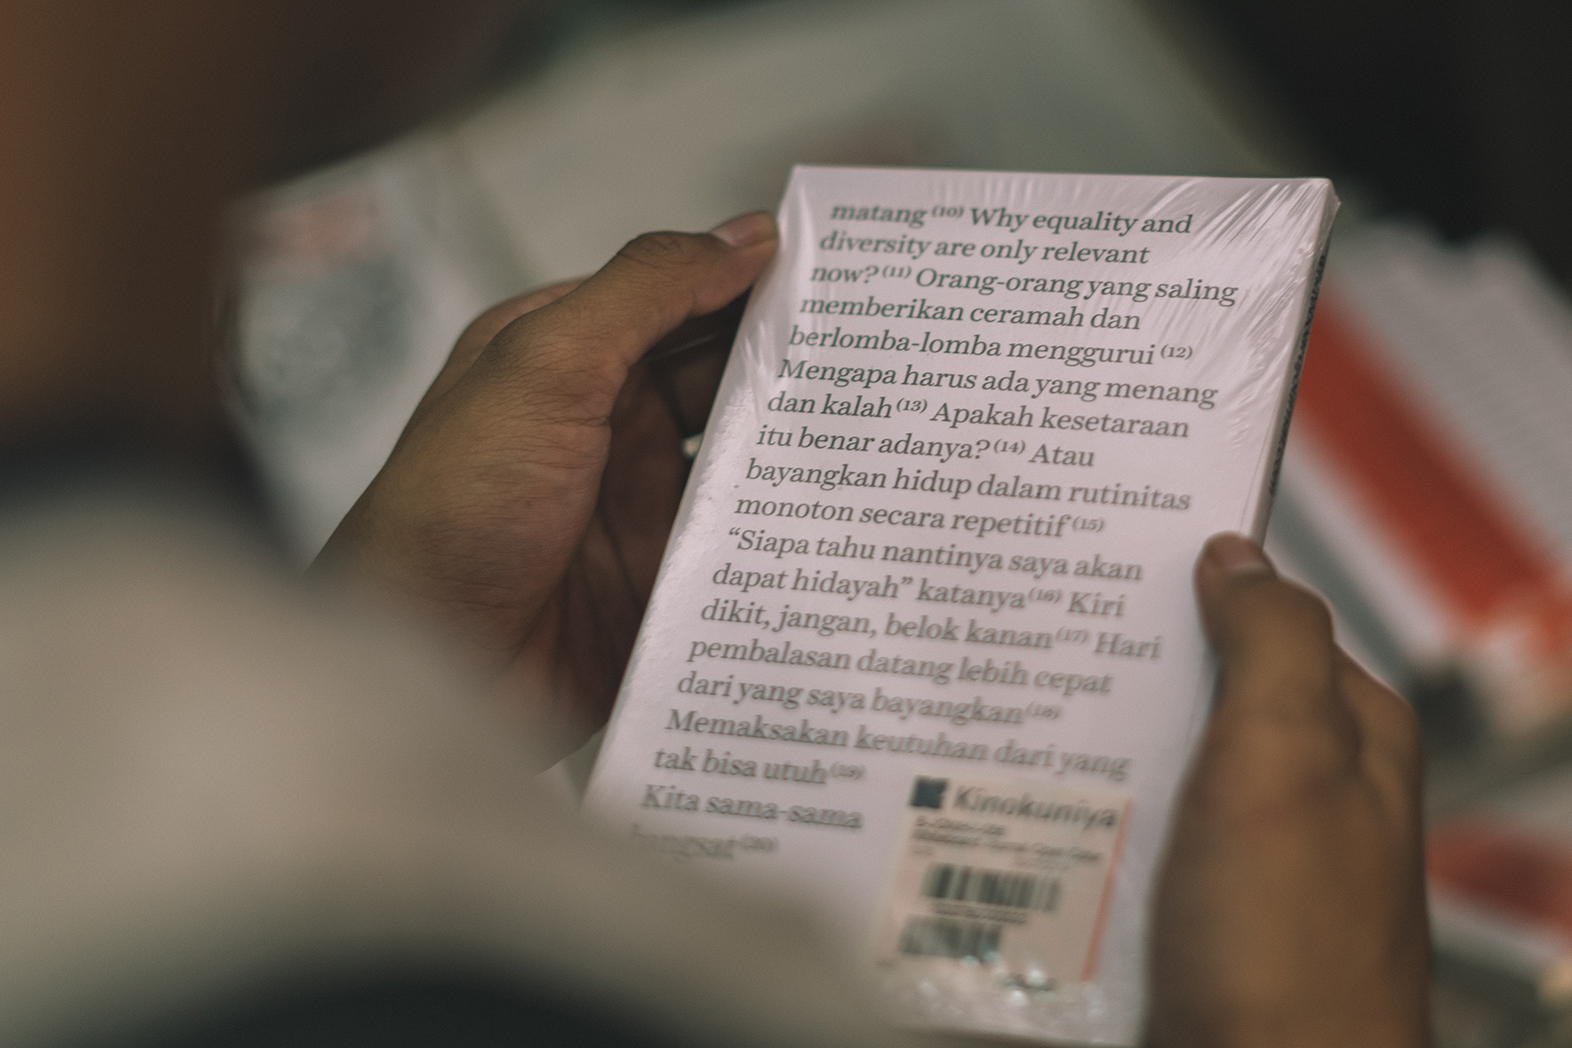 matang (10) Why equality and
diversity are only relevant
now? (11) Orang-orang yang saling
memberikan ceramah dan
berlomba-lomba menggurui (12)
Mengapa harus ada yang menang
dan kalah (13) Apakah kesetaraan
itu benar adanya? (14) Atau
bayangkan hidup dalam rutinitas
monoton secara repetitif (15)
“Siapa tahu nantinya saya akan
dapat hidayah” katanya (16) Kiri
dikit, jangan, belok kanan (17) Hari
pembalasan datang lebih cepat
dari yang saya bayangkan (18)
Memaksakan keutuhan dari yang
tak bisa utuh (19)
Kita sama-sama
bangsat (20)
Kinokuniya